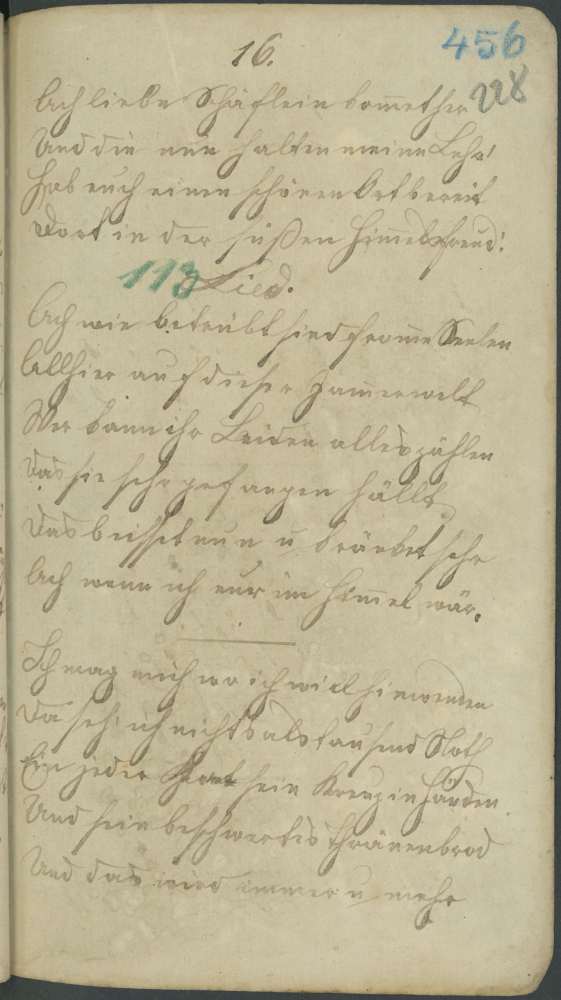 16.
456
228
Ach liebe Schäflein kommet her
Und die nur halten meine Lehr'
Hab euch einen schönen Ort bereit
Dort in der süßen Himmelsfreud'.
113 Lied.
Ach wie betrübt sind fromme Seelen
Allhier auf dieser Jamerwelt
Wer kann ihr Leiden alles zählen
Das sie sehr gefangen hällt
Das beisset nun u kränket sehr
Ach wenn ich nur im Himel wär.
Ich mag mich wo ich will hinwenden
Da seh' ich nichts als tausend Noth
Ein jeder hat sein Kreuz in Händen
Und sein beschwertes Thränenbrod
Und das wird immer u mehr